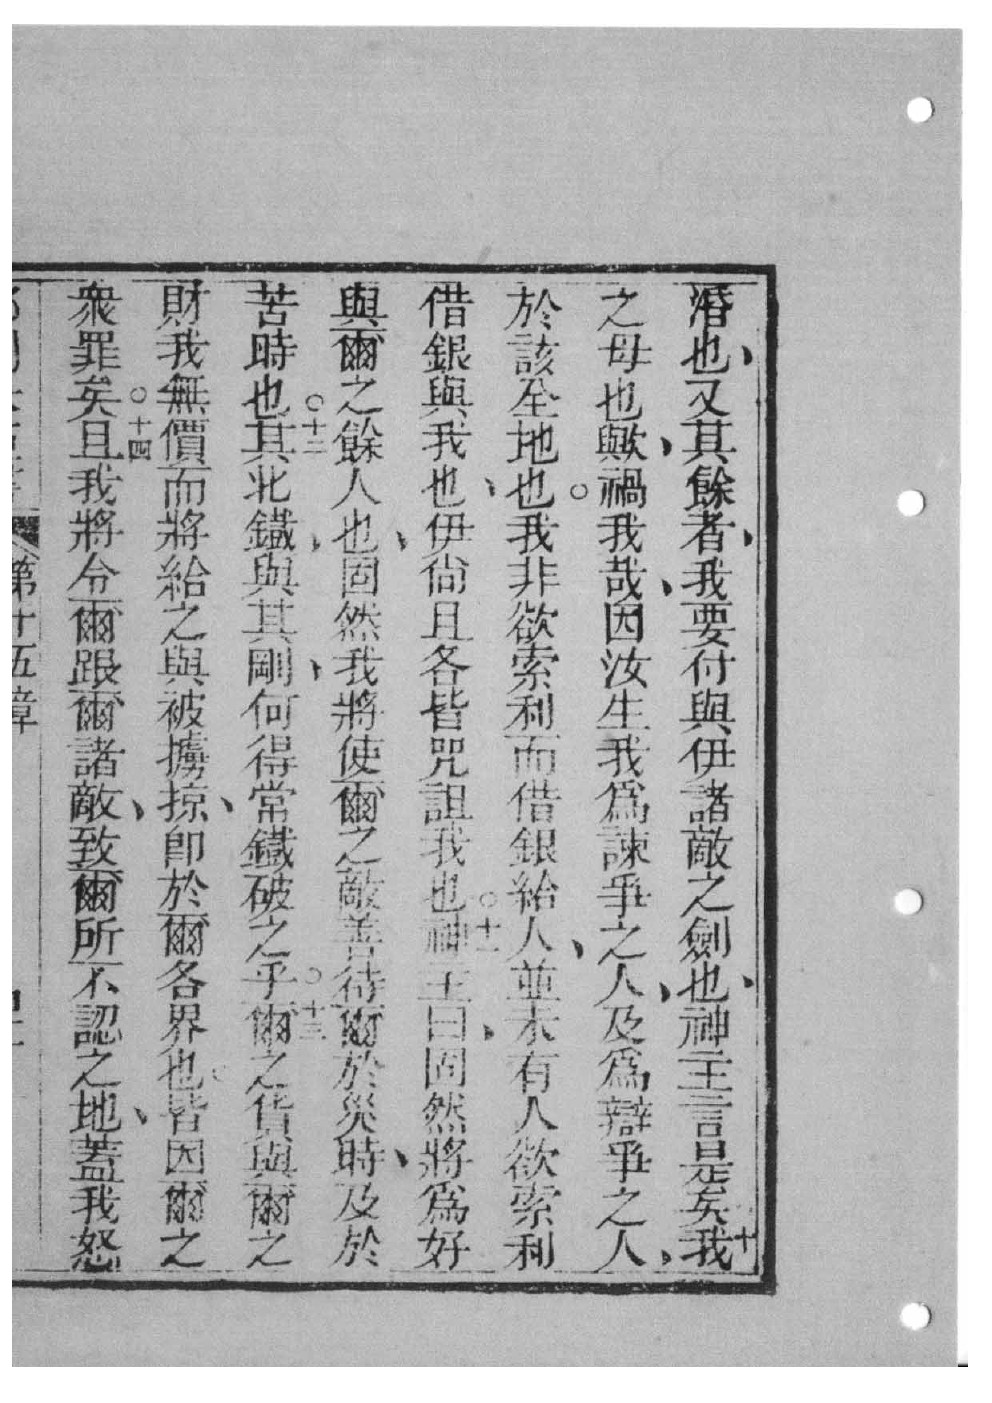 湣也又其餘者我要付與伊諸敵之劍也神主言是矣十我
之母也歟禍我哉因汝生我爲諫爭之人及爲辯爭之人
於該全地也○我非欲索利而借銀給人並未有人欲索利
借銀與我也伊尙且各皆咒詛我也○十一神主曰固然將爲好
與爾之餘人也固然我將使爾之敵善待爾於災時及於
苦時也○十二其北鐵與其剛何得常鐵破之乎○十三爾之貨與爾之
財我無價而將給之與被擄掠卽於爾各界也○皆因爾之
衆罪矣○十四且我將令爾跟爾諸敵致爾所不認之地蓋我怒
第十五章